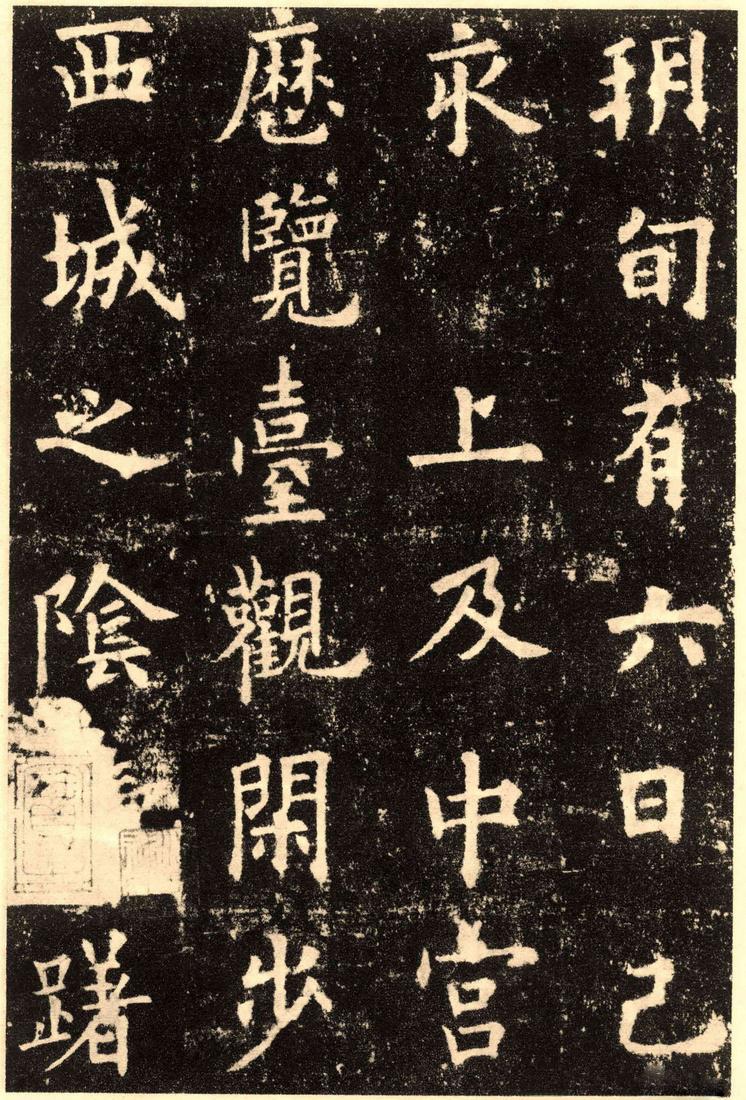 玥旬有六日己
永上及中宫
歴覽臺觀閑步
西城之陰躇